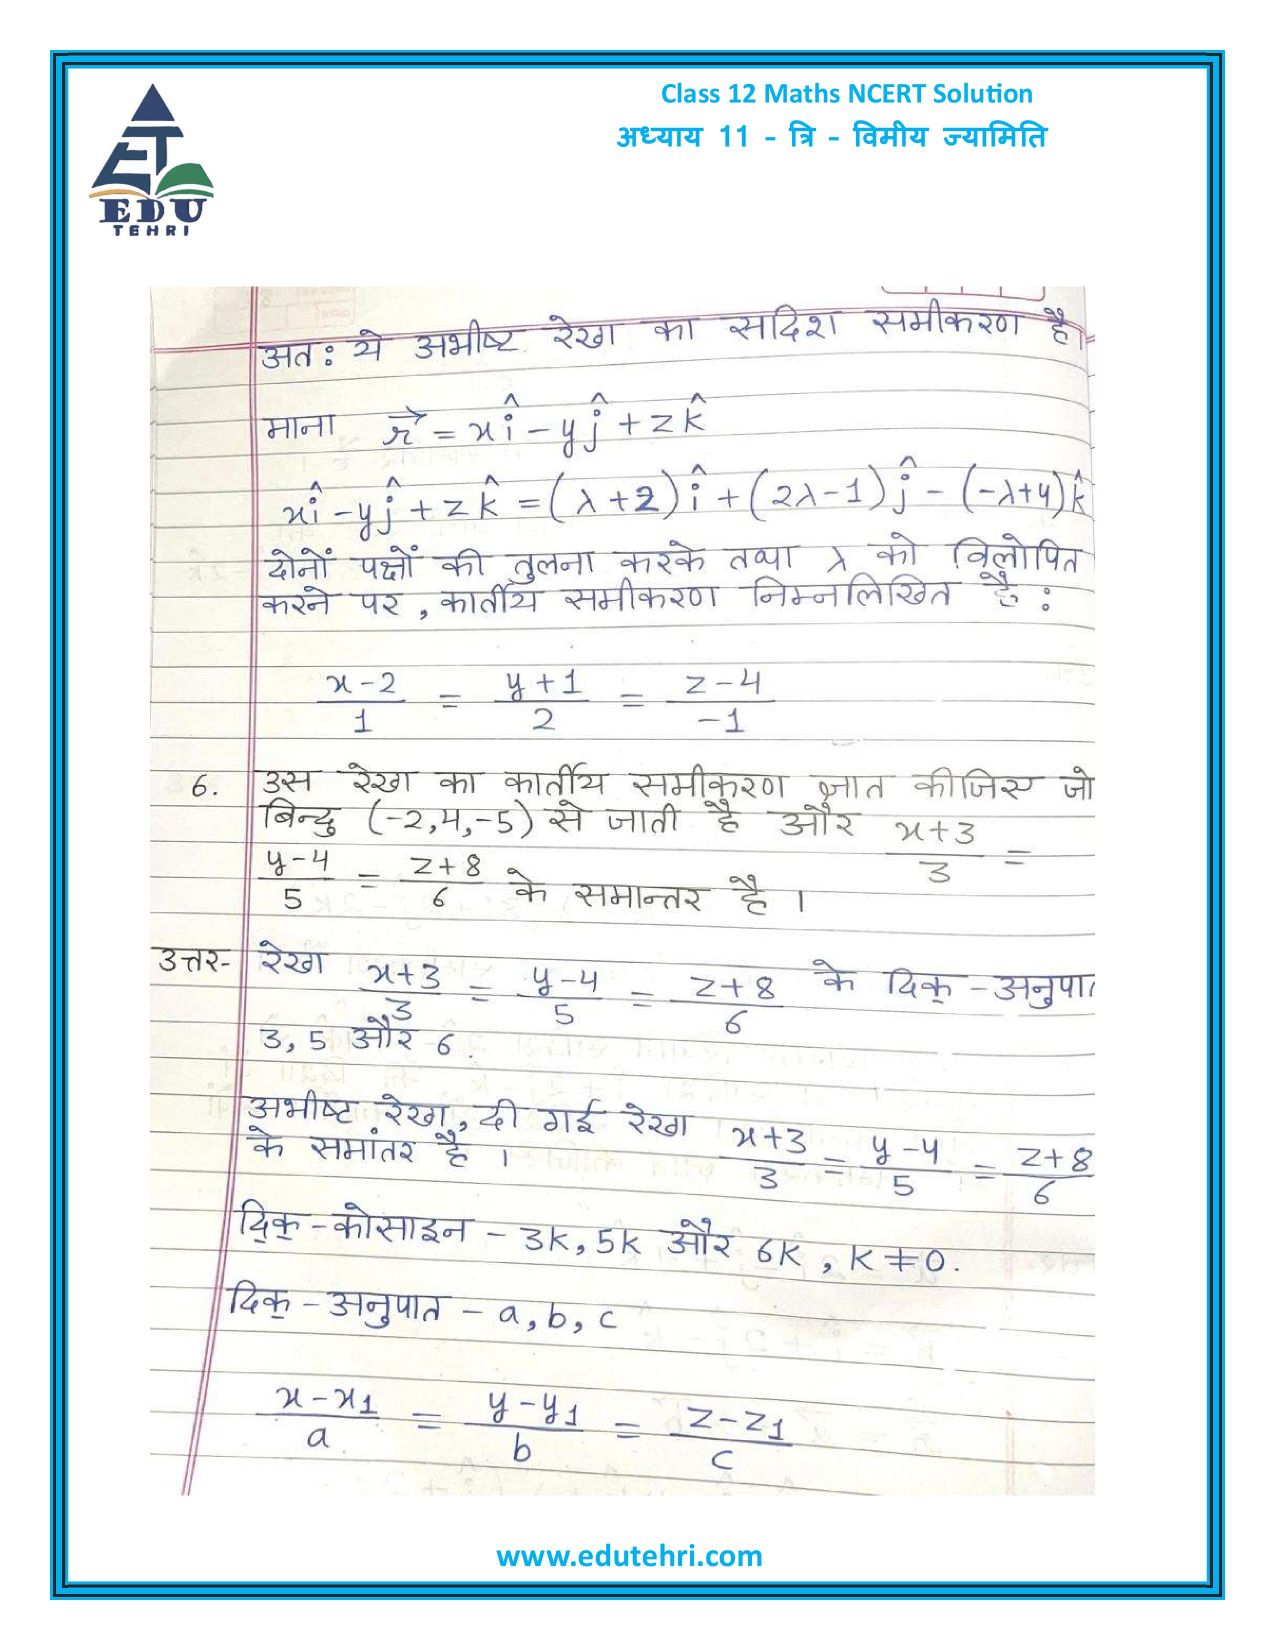 Class 12 Maths NCERT Solution
अध्याय 11 - त्रि - विमीय ज्यामिति
EDU
TEHRI
अतः ये अभीष्ट रेखा का सदिश समीकरण है।
माना r⃗ = xî - yĵ + zk̂
xî - yĵ + zk̂ = (λ+2)î + (2λ-1)ĵ - (-λ+4)k̂
दोनों पक्षों की तुलना करके तथा λ को विलोपित
करने पर, कार्तीय समीकरण निम्नलिखित है:
(x-2)/1 = (y+1)/2 = (z-4)/-1
6. उस रेखा का कार्तीय समीकरण ज्ञात कीजिए जो
बिन्दु (-2,4,-5) से जाती है और (x+3)/3 =
(y-4)/5 = (z+8)/6 के समान्तर है।
उत्तर- रेखा (x+3)/3 = (y-4)/5 = (z+8)/6 के दिक्-अनुपात
3, 5 और 6.
अभीष्ट रेखा, दी गई रेखा (x+3)/3 = (y-4)/5 = (z+8)/6
के समांतर है।
दिक्-कोसाइन - 3k, 5k और 6k, k ≠ 0.
दिक्-अनुपात - a, b, c
(x-x₁)/a = (y-y₁)/b = (z-z₁)/c
www.edutehri.com